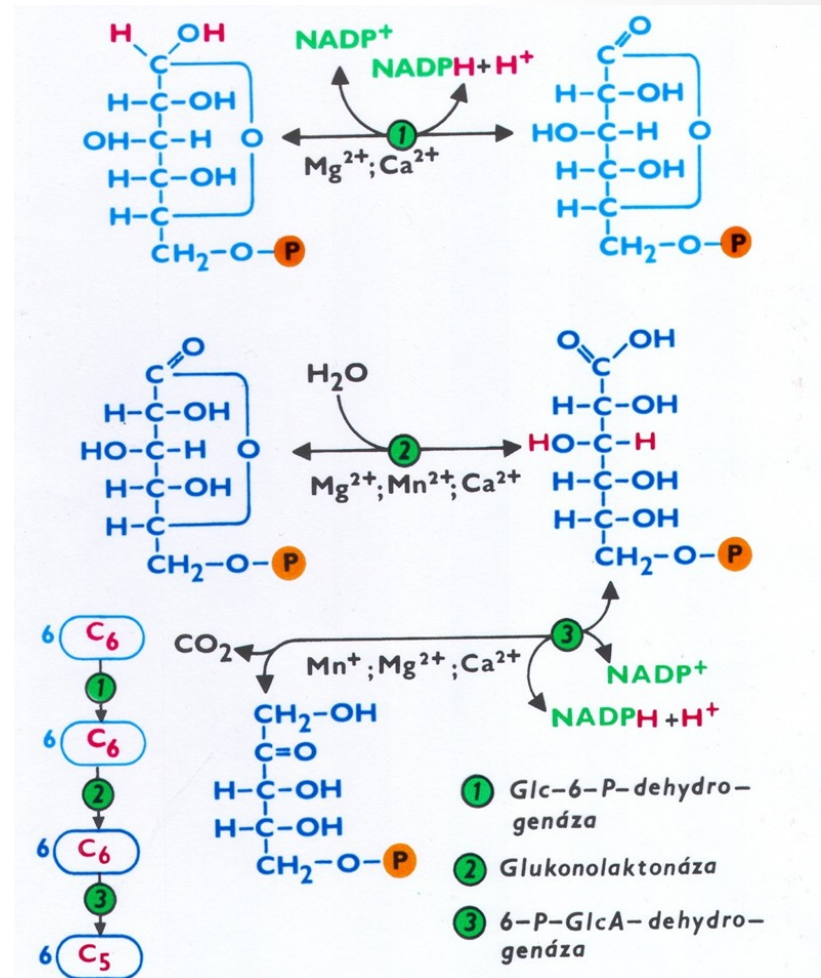 H OH
C
H-C-OH
OH-C-H O
H-C-OH
H-C
CH₂-O-P
NADP⁺
NADPH+H⁺
1
Mg²⁺;Ca²⁺
O
C
H-C-OH
HO-C-H O
H-C-OH
H-C
CH₂-O-P
O
C
H-C-OH
HO-C-H O
H-C-OH
H-C
CH₂-O-P
H₂O
2
Mg²⁺;Mn²⁺;Ca²⁺
O OH
C
H-C-OH
HO-C-H
H-C-OH
H-C-OH
CH₂-O-P
3
NADP⁺
NADPH+H⁺
CO₂
Mn⁺;Mg²⁺;Ca²⁺
CH₂-OH
C=O
H-C-OH
H-C-OH
CH₂-O-P
6 C₆
1
6 C₆
2
6 C₆
3
6 C₅
1 Glc-6-P-dehydro-
genáza
2 Glukonolaktonáza
3 6-P-GlcA-dehydro-
genáza